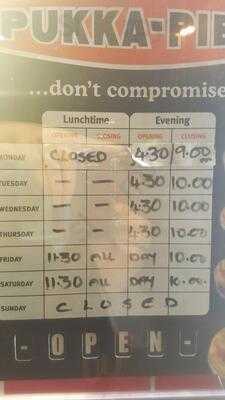 PUKKA-PIE
...don't compromise
Lunchtime Evening
OPENING CLOSING OPENING CLOSING
MONDAY CLOSED 4:30 9.00 pm
TUESDAY — — 4:30 10.00
WEDNESDAY — — 4:30 10.00
THURSDAY — — 4:30 10.00
FRIDAY 11:30 ALL DAY 10.00
SATURDAY 11.30 ALL DAY 10.00
SUNDAY CLOSED
- OPEN -